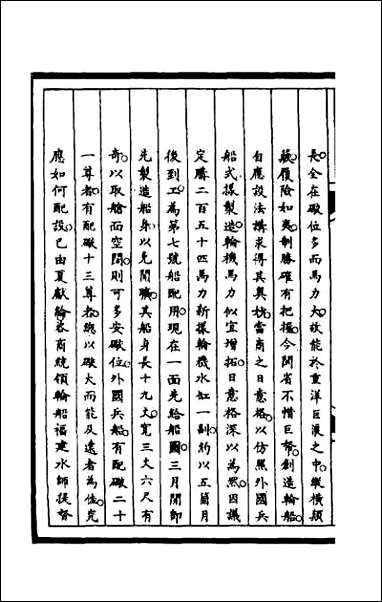 長全在礮位多而馬力大故能於重洋巨浪之中縱橫顛
簸履險如夷制勝確有把握今閩省不惜巨帑創造輪船
自應設法講求得其奧竅當商之日意格以仿照外國兵
船式樣製造輪機馬力似宜增拓日意格深以為然因議
定購二百五十匹馬力新樣輪機水缸一副約以五箇月
後到工為第七號船配用現在一面先給船圖三月間即
先製造船身以免閒曠其船身長十九丈寬三丈六尺有
奇以取艙面空闊則可多安礮位外國兵船有配礮二十
一尊者有配礮十三尊者總以礮大而能及遠者為佳究
應如何配設已由夏獻綸咨商統領輪船福建水師提督